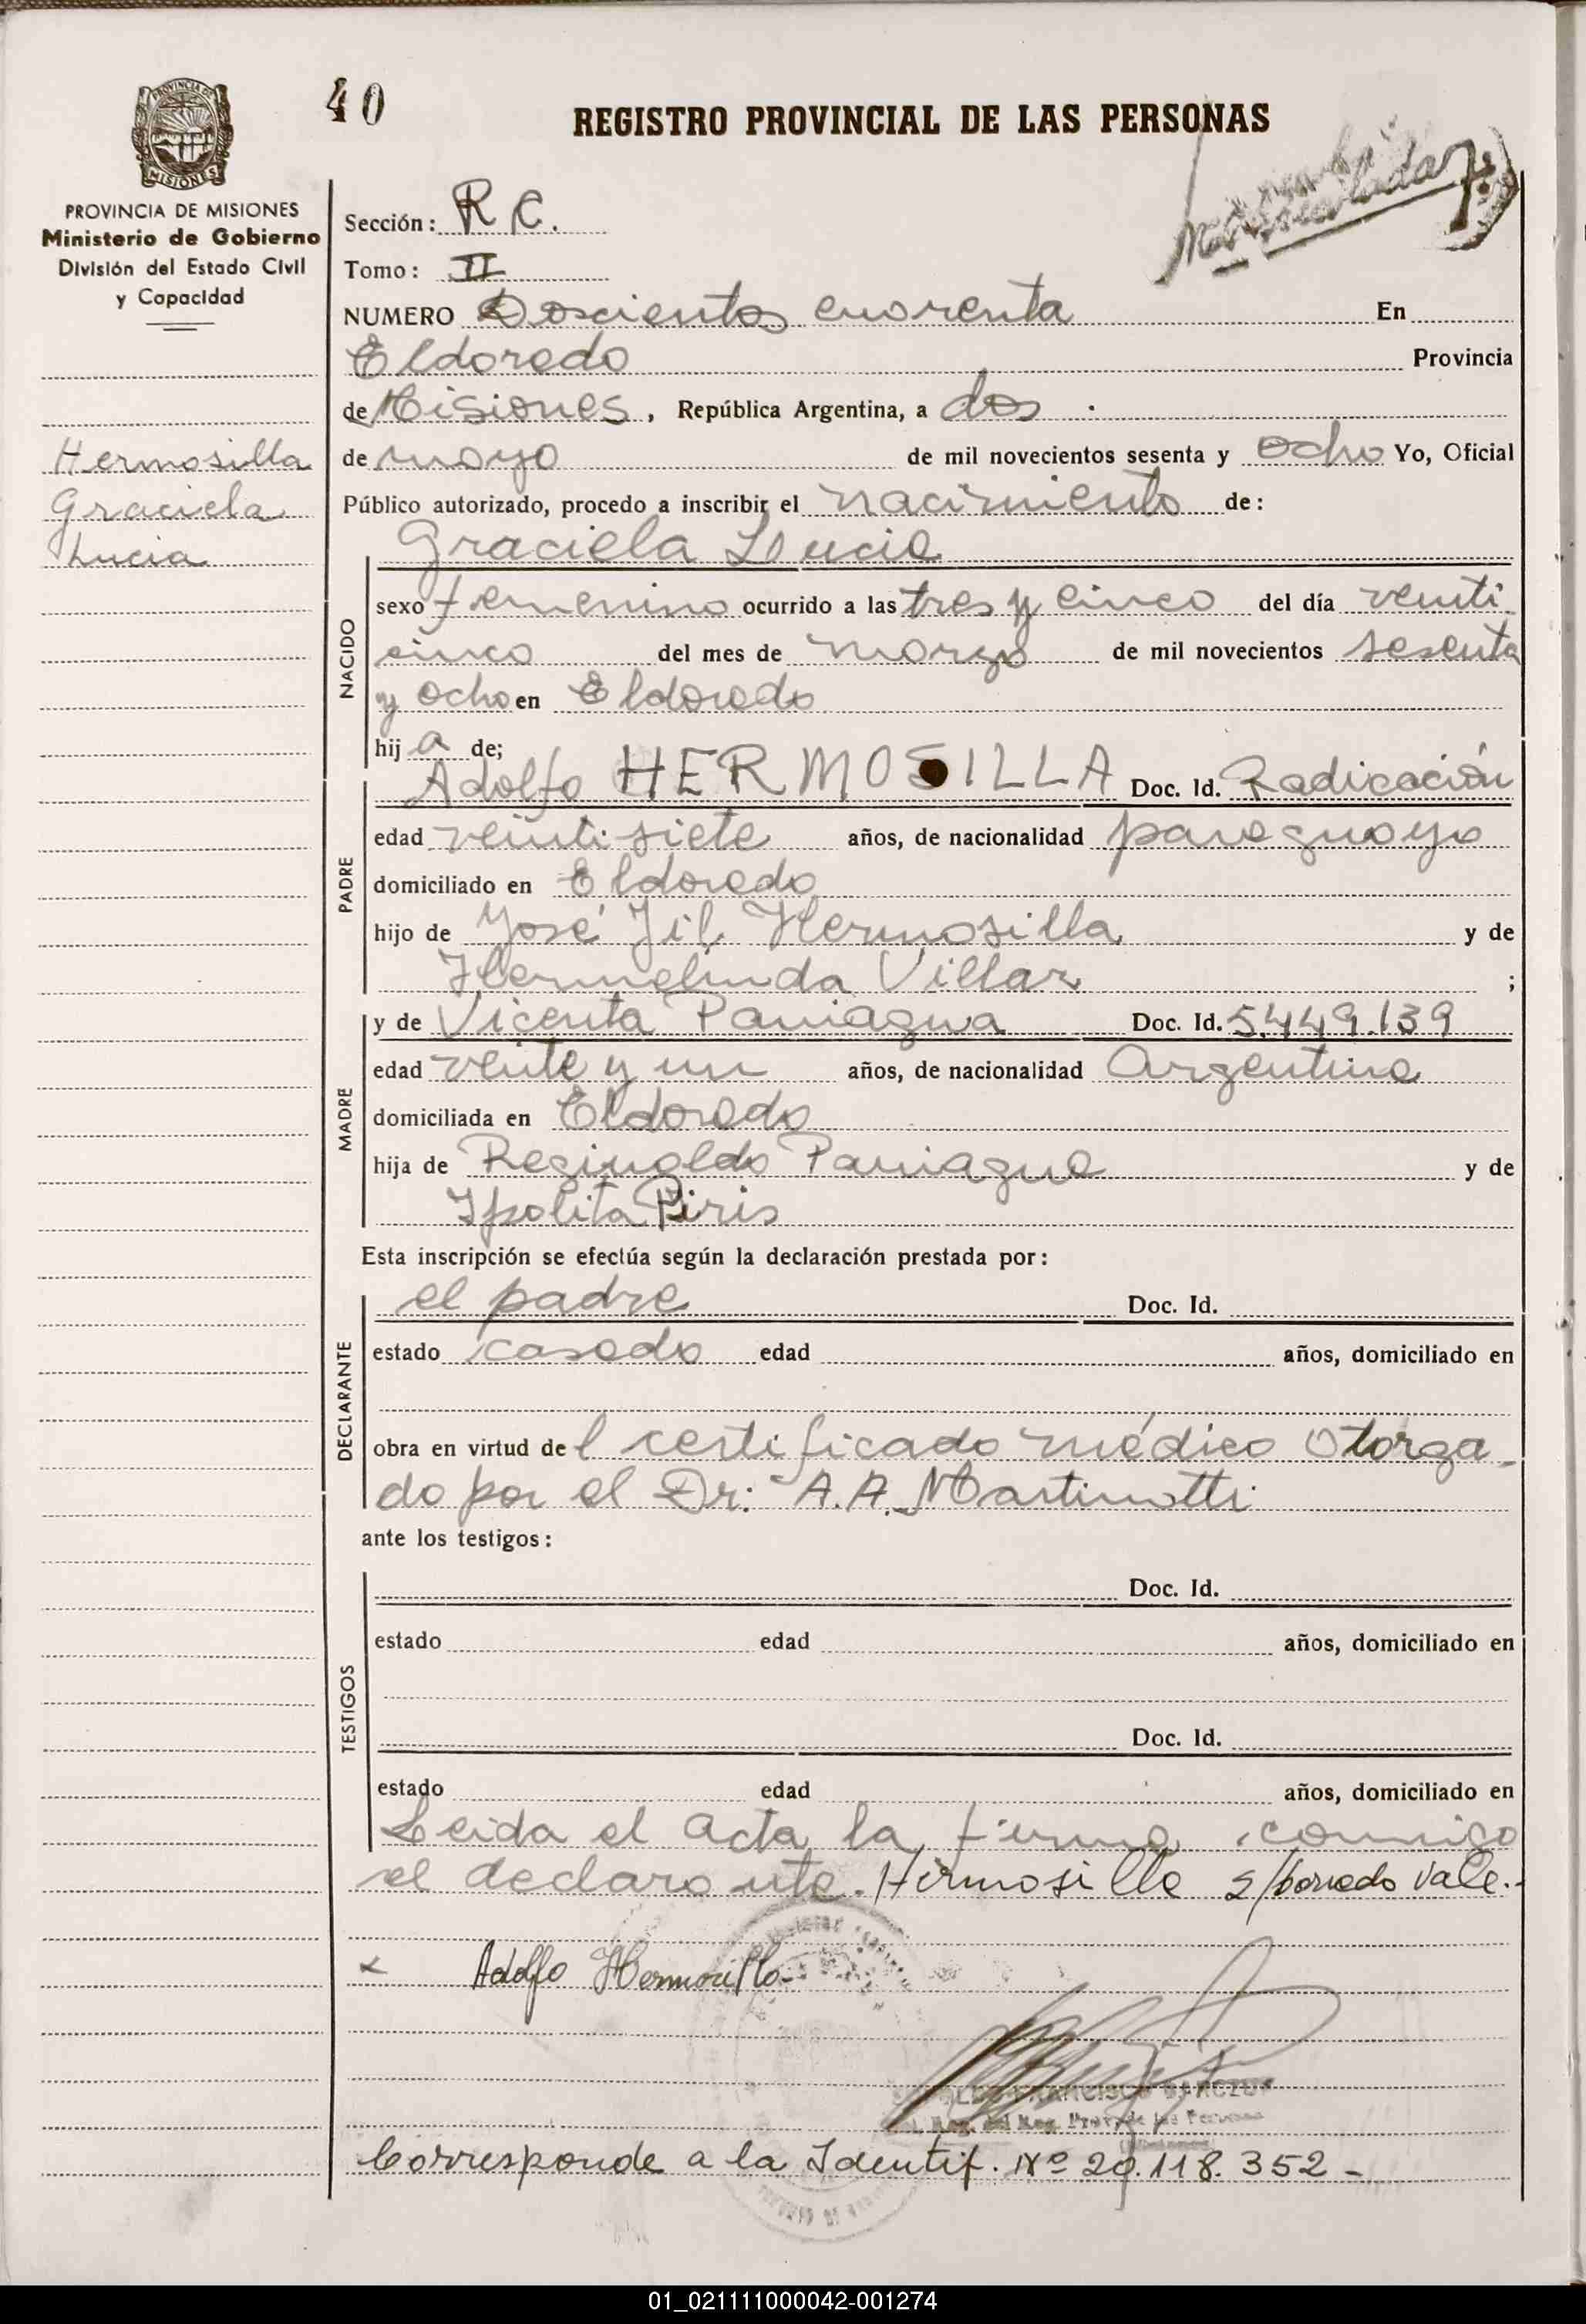 40
REGISTRO PROVINCIAL DE LAS PERSONAS
PROVINCIA DE MISIONES
Ministerio de Gobierno
División del Estado Civil
y Capacidad
Hermosilla
Graciela
Lucia
Sección: R C.
Tomo: II
NUMERO Doscientos cuarenta En
Eldorado Provincia
de Misiones, República Argentina, a dos
de mayo de mil novecientos sesenta y ocho Yo, Oficial
Público autorizado, procedo a inscribir el nacimiento de:
Graciela Lucia
NACIDO
sexo femenino ocurrido a las tres y cinco del día venti
cinco del mes de marzo de mil novecientos sesenta
y ocho en Eldorado
hija de;
Adolfo HERMOSILLA Doc. Id. Radicación
PADRE
edad veinti siete años, de nacionalidad paraguayo
domiciliado en Eldorado
hijo de José Jil Hermosilla y de
Hermelinda Villar ;
y de Vicenta Paniagua Doc. Id. 5.449.139
MADRE
edad veinte y un años, de nacionalidad Argentina
domiciliada en Eldorado
hija de Reginaldo Paniagua y de
Ipolita Piris
Esta inscripción se efectúa según la declaración prestada por:
el padre Doc. Id.
DECLARANTE
estado casado edad años, domiciliado en
obra en virtud del certificado médico otorga
do por el Dr: A.A. Martinotti
ante los testigos:
Doc. Id.
TESTIGOS
estado edad años, domiciliado en
Doc. Id.
estado edad años, domiciliado en
Leida el acta la firma conmigo
el declarante. Hermosilla s/borrado vale.-
x Adolfo Hermosilla
Corresponde a la Identif. Nº 20.118.352 -
01_021111000042-001274